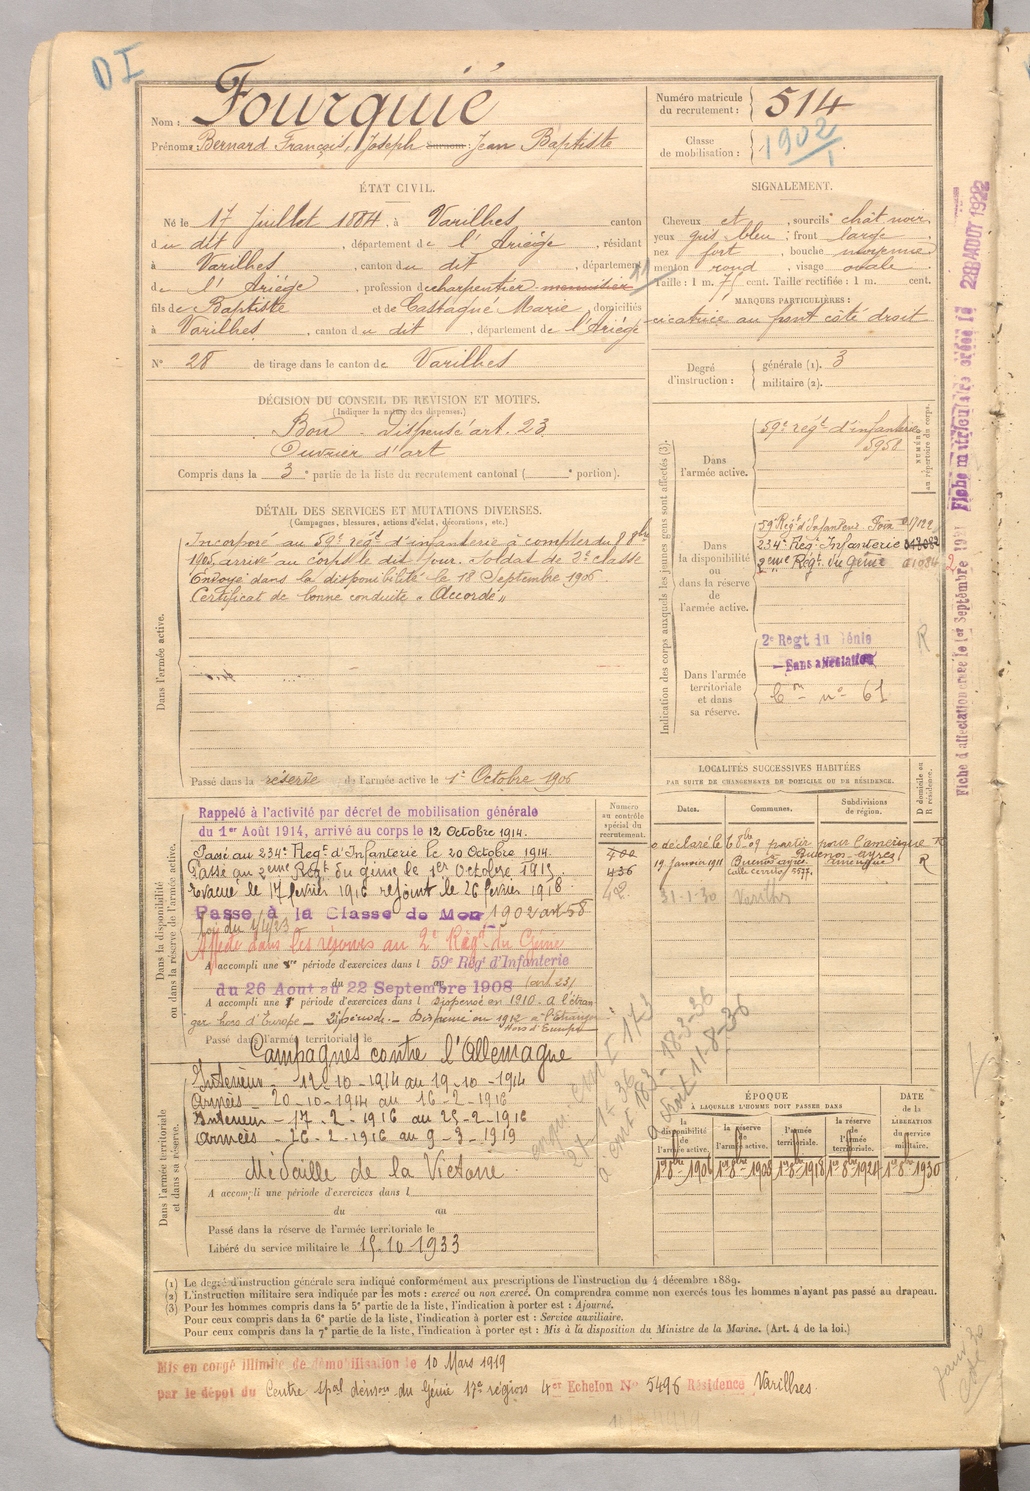 DI
Nom : Fourquié
Prénoms Bernard François, Joseph Surnom : Jean Baptiste
Numéro matricule du recrutement : 514
Classe de mobilisation : 1902/1
ÉTAT CIVIL.
Né le 17 Juillet 1884, à Varilhes canton
du dit, département de l'Ariège, résidant
à Varilhes, canton du dit, département
de l'Ariège, profession de charpentier menuisier 11
fils de Baptiste et de Castagné Marie, domiciliés
à Varilhes, canton du dit, département de l'Ariège
N° 28 de tirage dans le canton de Varilhes
SIGNALEMENT.
Cheveux et, sourcils chat noir
yeux gris bleu; front large
nez fort, bouche moyenne
menton rond, visage ovale
Taille : 1 m. 71 cent. Taille rectifiée : 1 m. cent.
MARQUES PARTICULIÈRES :
cicatrice au front côté droit
Degré d'instruction : générale (1). 3
militaire (2).
DÉCISION DU CONSEIL DE REVISION ET MOTIFS.
(Indiquer la nature des dispenses.)
Bon - Dispensé art. 23
Ouvrier d'art
Compris dans la 3e partie de la liste du recrutement cantonal ( e portion).
DÉTAIL DES SERVICES ET MUTATIONS DIVERSES.
(Campagnes, blessures, actions d'éclat, décorations, etc.)
Dans l'armée active.
Incorporé au 59e régt d'infanterie à compter du 8 8bre
1905, arrivé au corps le dit jour. Soldat de 2e classe
Envoyé dans la disponibilité le 18 Septembre 1906
Certificat de bonne conduite "Accordé"
Passé dans la réserve de l'armée active le 1er Octobre 1906
Indication des corps auxquels les jeunes gens sont affectés (3).
NUMÉRO au répertoire du corps.
Dans l'armée active.
59e régt d'infanterie
5950
Dans la disponibilité ou dans la réserve de l'armée active.
59e Régt d'Infanterie Foix
234e Régt Infanterie
2ème Régt du génie
Dans l'armée territoriale et dans sa réserve.
2e Regt du Génie
Sans affectation
R
Con n° 61
Fiche d'affectation
Fiche matriculaire créée le 28 AOUT 1922
Dans la disponibilité ou dans la réserve de l'armée active.
Rappelé à l'activité par décret de mobilisation générale
du 1er Août 1914, arrivé au corps le 12 Octobre 1914.
Passé au 234e Regt d'Infanterie le 20 Octobre 1914.
Passé au 2eme Régt du génie le 1er Octobre 1915.
Evacué le 17 février 1916 rejoint le 26 février 1918
Passé à la Classe de Mon 1902 art 58
loi du 1/4/23
Affecté dans les réserves au 2e Régt du Génie
A accompli une 1re période d'exercices dans l 59e Régt d'Infanterie
du 26 Aout au 22 Septembre 1908 (art. 23)
A accompli une période d'exercices dans l dispensé en 1910. a l'étran
ger hors d'Europe - 2e période - Dispensé en 1912 à l'Etranger
Hors d'Europe
Passé dans l'armée territoriale le
Numéro au contrôle spécial du recrutement.
400
436
LOCALITÉS SUCCESSIVES HABITÉES
PAR SUITE DE CHANGEMENTS DE DOMICILE OU DE RÉSIDENCE.
Dates. Communes. Subdivisions de région. D domicile ou R résidence.
a déclaré le 6 8bre 09 partir pour l'amerique R
Buenos-ayres
19 Janvier 1911 Buenos ayres R
calle cerrito 5577
31-1-30 Varilhes
Dans l'armée territoriale et dans sa réserve.
Campagnes contre l'Allemagne
Intérieur - 12-10-1914 au 19-10-1914
Armées - 20-10-1914 au 16-2-1916
Intérieur - 17-2-1916 au 25-2-1916
armées - 26-2-1916 au 9-3-1919
Médaille de la Victoire
A accompli une période d'exercices dans l
du au
Passé dans la réserve de l'armée territoriale le
Libéré du service militaire le 15-10-1933
18-3-36
11-8-36
ÉPOQUE
À LAQUELLE L'HOMME DOIT PASSER DANS
la disponibilité de l'armée active. la réserve de l'armée active. l'armée territoriale. la réserve de l'armée territoriale.
DATE de la LIBÉRATION du service militaire.
1er 8bre 1906 1er 8bre 1908 1er 8bre 1918 1er 8bre 1924 1er 8bre 1930
(1) Le degré d'instruction générale sera indiqué conformément aux prescriptions de l'instruction du 4 décembre 1889.
(2) L'instruction militaire sera indiquée par les mots : exercé ou non exercé. On comprendra comme non exercés tous les hommes n'ayant pas passé au drapeau.
(3) Pour les hommes compris dans la 5e partie de la liste, l'indication à porter est : Ajourné.
Pour ceux compris dans la 6e partie de la liste, l'indication à porter est : Service auxiliaire.
Pour ceux compris dans la 7e partie de la liste, l'indication à porter est : Mis à la disposition du Ministre de la Marine. (Art. 4 de la loi.)
Mis en congé illimité de démobilisation le 10 Mars 1919
par le dépot du Centre spal démon du Génie 17e région 4er Echelon N° 5496 Résidence Varilhes.